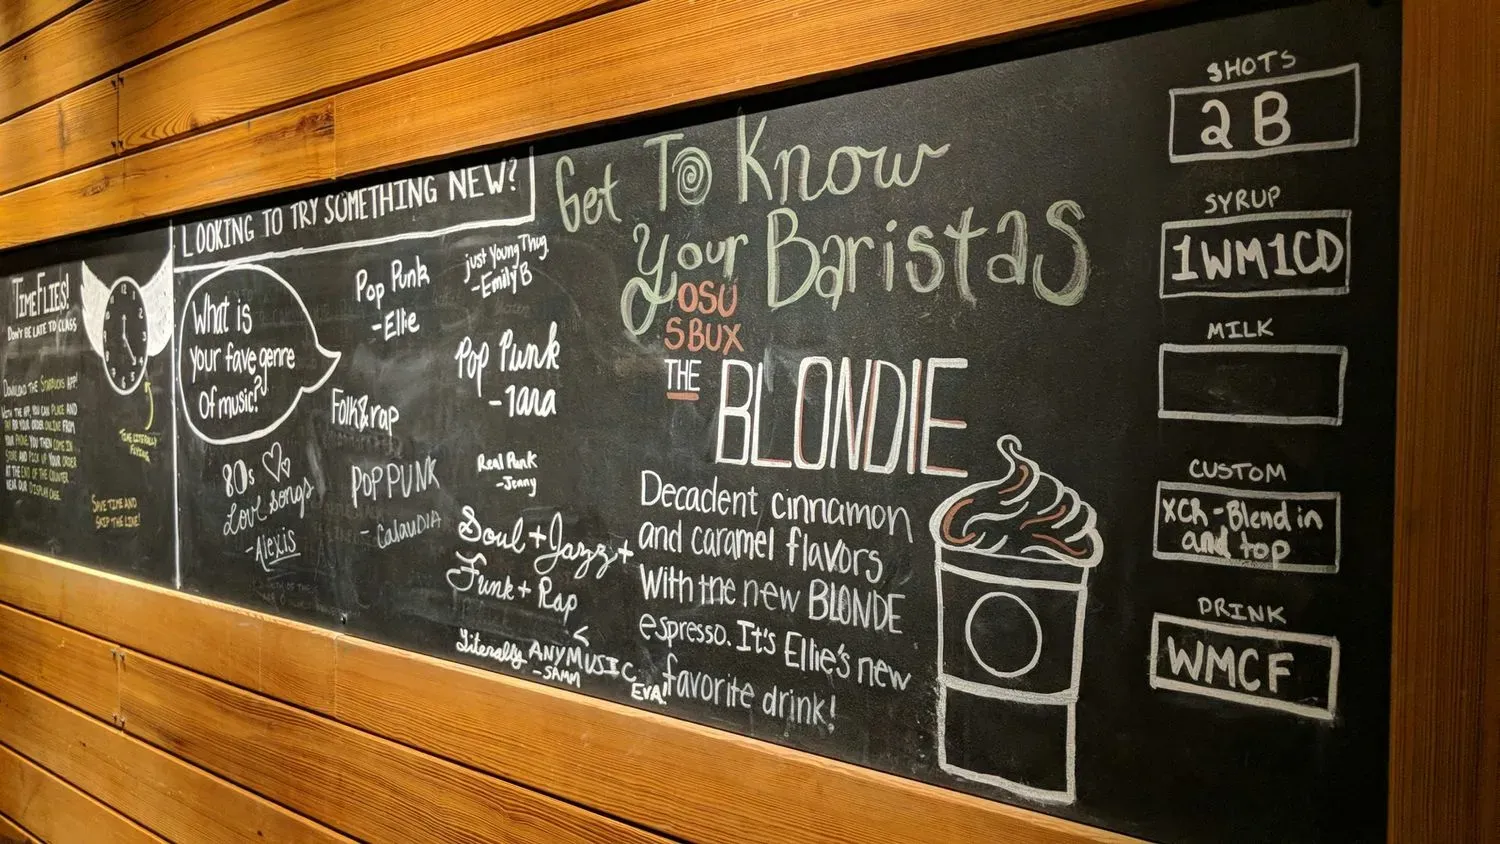 TIME FLIES!
DON'T BE LATE TO CLASS
DOWNLOAD THE STARBUCKS APP!
WITH THE APP, YOU CAN PLACE AND
PAY FOR YOUR ORDER ONLINE FROM
YOUR PHONE YOU THEN COME IN
STORE AND PICK UP YOUR ORDER
AT THE END OF THE COUNTER
NEAR OUR DISPLAY CASE.
TIME LITERALLY
FLYING
SAVE TIME AND
SKIP THE LINE!
LOOKING TO TRY SOMETHING NEW?
What is
your fave genre
Of music?
Pop Punk
-Ellie
just Young Thug
-Emily B
Folk&rap
Pop Punk
-Tara
80s
Love Songs
-Alexis
POP PUNK
-CalauDIA
Real Punk
-Jenny
Soul + Jazz +
Funk + Rap
Literally ANY MUSIC
-SAMM
EVA
Get To Know
Your Baristas
OSU
SBUX
THE BLONDIE
Decadent cinnamon
and caramel flavors
With the new BLONDE
espresso. It's Ellie's new
favorite drink!
SHOTS
2 B
SYRUP
1WM1CD
MILK
CUSTOM
XCh-Blend in
and top
DRINK
WMCF